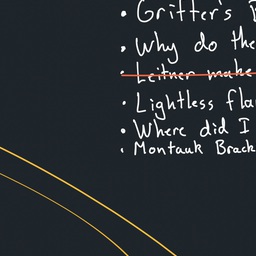 • Gritter's
• Why do the
• Leitner make
• Lightless fla
• Where did I
• Montauk Brack